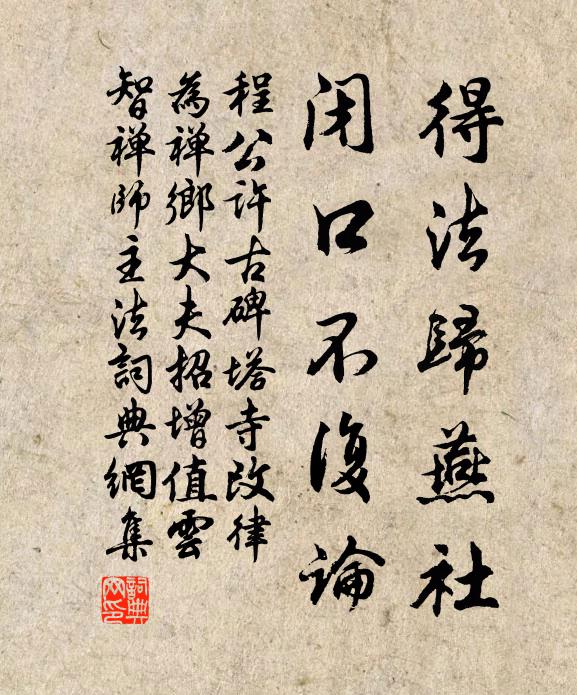 得法歸燕社
閉口不復論
程公許古碑塔寺改律
為禪鄉大夫招增值雲
智禪師主法詞典網集
詞典